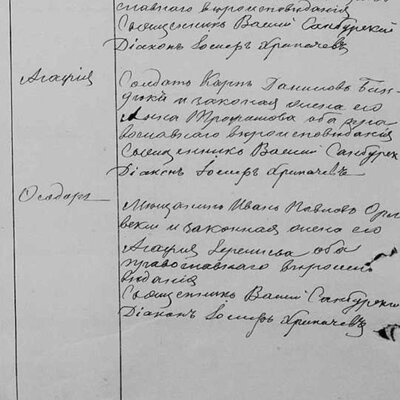 славнаго вѣроисповѣданія
Священникъ Василій Санбурскій
Діаконъ Іосифъ Хрипачевъ
Агафія
Солдатъ Карпъ Даниловъ Бин-
и законная жена его
Анна Трофимова оба пра-
вославнаго вѣроисповѣданія
Священникъ Василій Санбурск
Діаконъ Іосифъ Хрипачевъ
Ѳеодоръ
Мѣщанинъ Иванъ Павловъ
и законная жена его
Агафія оба
православнаго вѣроиспо-
вѣданія
Священникъ Василій Санбурскій
Діаконъ Іосифъ Хрипачевъ